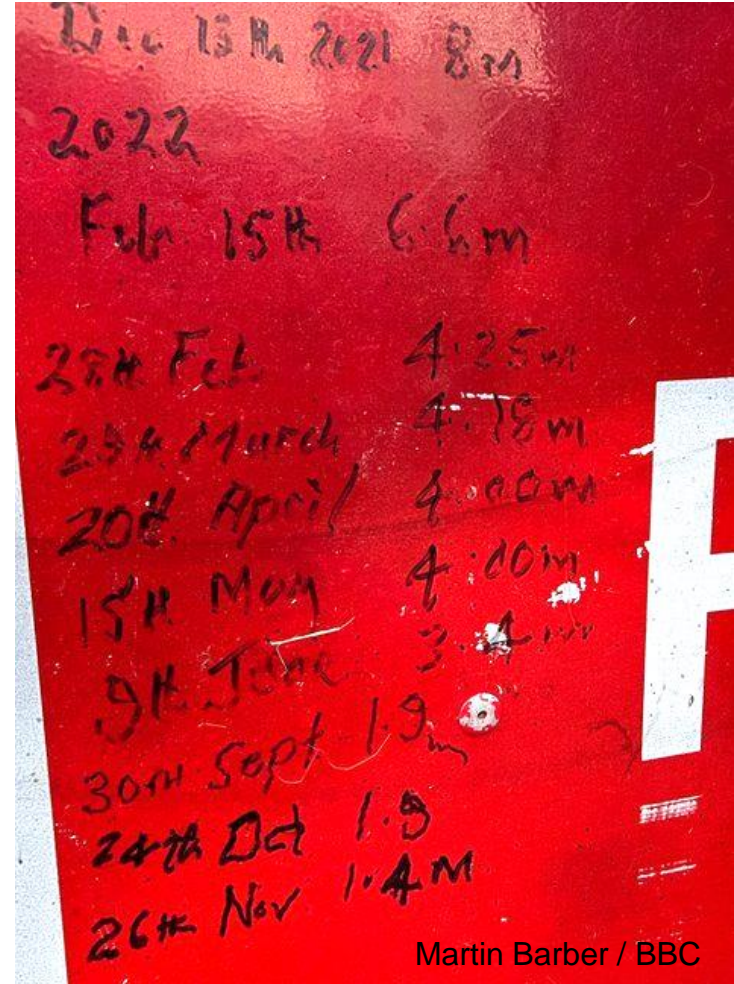 Dec 13th 2021 8m
2022
Feb 15th 6.6m
28th Feb 4.25m
25th March 4.18m
20th April 4.00m
15th May 4.00m
9th June 3.4m
30TH Sept 1.9m
24th Oct 1.9
26th Nov 1.4M
Martin Barber / BBC